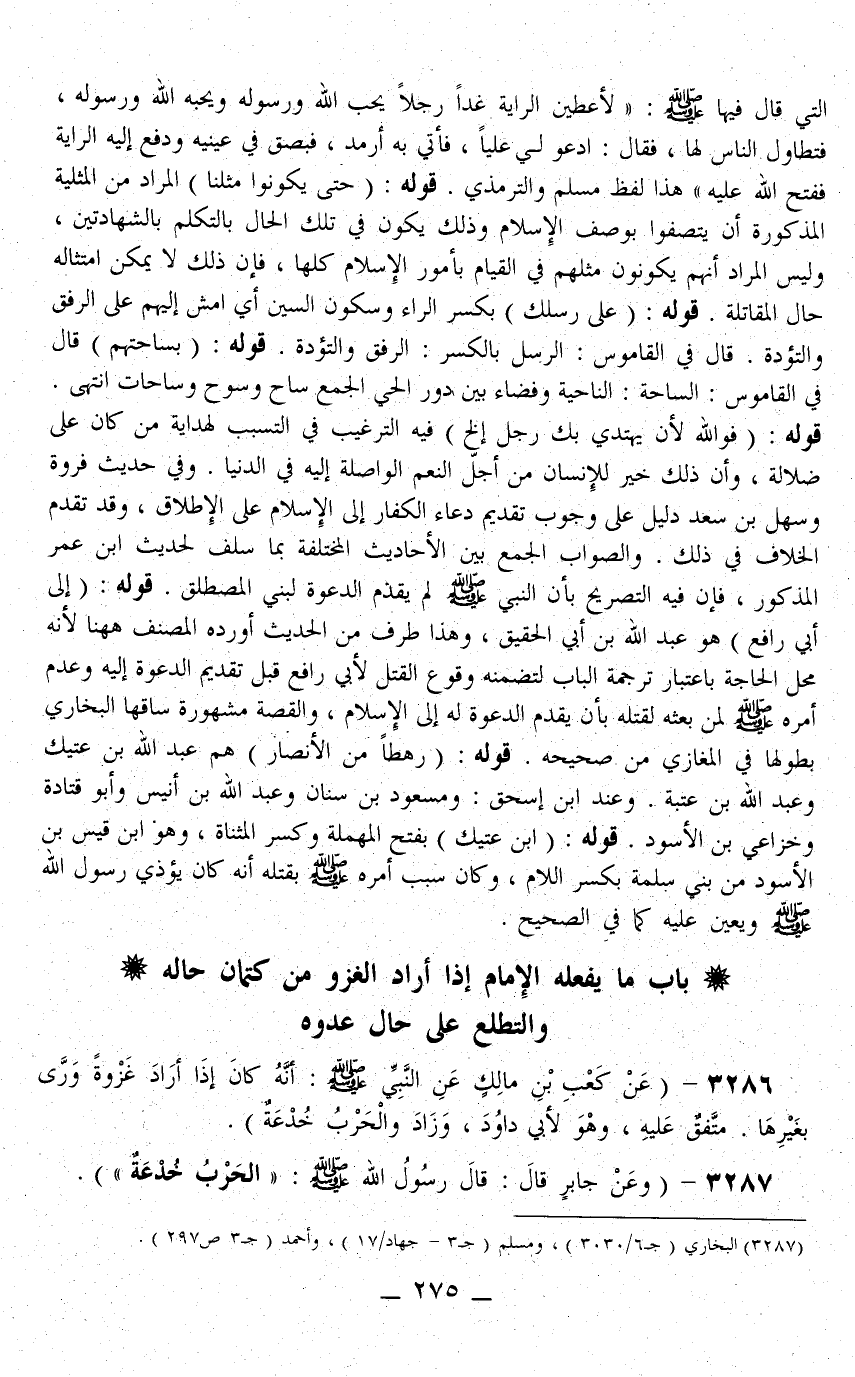 التي قال فيها ﷺ : « لأعطين الراية غداً رجلاً يحب الله ورسوله ويحبه الله ورسوله ،
فتطاول الناس لها ، فقال : ادعو لي علياً ، فأتي به أرمد ، فبصق في عينيه ودفع إليه الراية
ففتح الله عليه » هذا لفظ مسلم والترمذي . قوله : ( حتى يكونوا مثلنا ) المراد من المثلية
المذكورة أن يتصفوا بوصف الإسلام وذلك يكون في تلك الحال بالتكلم بالشهادتين ،
وليس المراد أنهم يكونون مثلهم في القيام بأمور الإسلام كلها ، فإن ذلك لا يمكن امتثاله
حال المقاتلة . قوله : ( على رسلك ) بكسر الراء وسكون السين أي امش إليهم على الرفق
والتؤدة . قال في القاموس : الرسل بالكسر : الرفق والتؤدة . قوله : ( بساحتهم ) قال
في القاموس : الساحة : الناحية وفضاء بين دور الحي الجمع ساح وسوح وساحات انتهى .
قوله : ( فوالله لأن يهتدي بك رجل إلخ ) فيه الترغيب في التسبب لهداية من كان على
ضلالة ، وأن ذلك خير للإنسان من أجلّ النعم الواصلة إليه في الدنيا . وفي حديث فروة
وسهل بن سعد دليل على وجوب تقديم دعاء الكفار إلى الإسلام على الإطلاق ، وقد تقدم
الخلاف في ذلك . والصواب الجمع بين الأحاديث المختلفة بما سلف لحديث ابن عمر
المذكور ، فإن فيه التصريح بأن النبي ﷺ لم يقدّم الدعوة لبني المصطلق . قوله : ( إلى
أبي رافع ) هو عبد الله بن أبي الحقيق ، وهذا طرف من الحديث أورده المصنف ههنا لأنه
محل الحاجة باعتبار ترجمة الباب لتضمنه وقوع القتل لأبي رافع قبل تقديم الدعوة إليه وعدم
أمره ﷺ لمن بعثه لقتله بأن يقدم الدعوة له إلى الإسلام ، والقصة مشهورة ساقها البخاري
بطولها في المغازي من صحيحه . قوله : ( رهطاً من الأنصار ) هم عبد الله بن عتيك
وعبد الله بن عتبة . وعند ابن إسحق : ومسعود بن سنان وعبد الله بن أنيس وأبو قتادة
وخزاعي بن الأسود . قوله : ( ابن عتيك ) بفتح المهملة وكسر المثناة ، وهو ابن قيس بن
الأسود من بني سلمة بكسر اللام ، وكان سبب أمره ﷺ بقتله أنه كان يؤذي رسول الله
ﷺ ويعين عليه كما في الصحيح .
✹ باب ما يفعله الإمام إذا أراد الغزو من كتمان حاله ✹
والتطلع على حال عدوه
٣٢٨٦ – ( عَنْ كَعْبِ بْنِ مالِكٍ عَنِ النَّبِيِّ ﷺ : أنَّهُ كانَ إذَا أرَادَ غَزْوةً وَرَّى
بغَيْرِهَا . متَّفقٌ عَليهِ ، وهْوَ لأبي داوُدَ ، وَزَادَ والْحَرْبُ خُدْعَةٌ ) .
٣٢٨٧ – ( وعَنْ جابرٍ قالَ : قالَ رسُولُ الله ﷺ : « الحَرْبُ خُدْعَةٌ » ) .
(٣٢٨٧) البخاري ( جـ٣٠٣٠/٦ ) ، ومسلم ( جـ٣ – جهاد/١٧ ) ، وأحمد ( جـ٣ ص٢٩٧ ) .
_ ٢٧٥ _